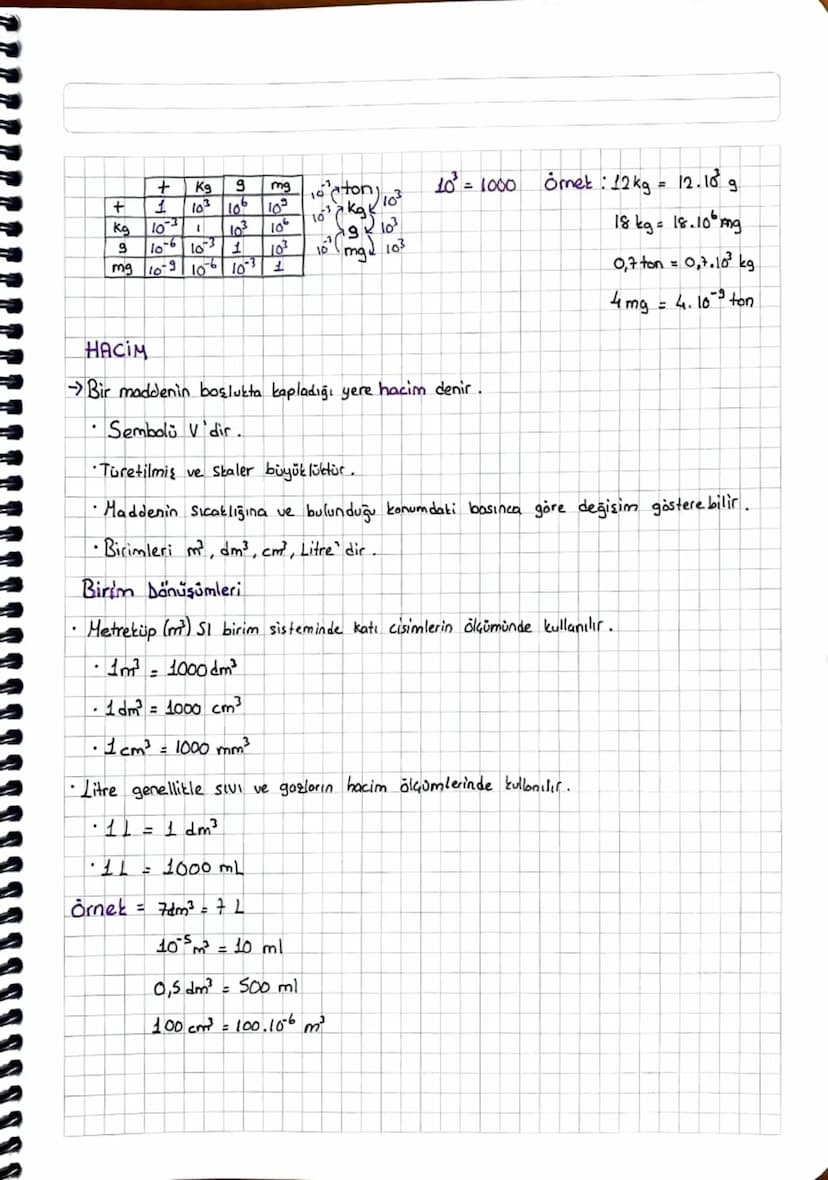 t kg g mg
t 1 10³ 10⁶ 10⁹
kg 10⁻³ 1 10³ 10⁶
g 10⁻⁶ 10⁻³ 1 10³
mg 10⁻⁹ 10⁻⁶ 10⁻³ 1
10⁻³ ton 10³
10⁻³ kg
g 10³
10⁻³ mg 10³
10³ = 1000 Örnek : 12 kg = 12.10³ g
18 kg = 18.10⁶ mg
0,7 ton = 0,7.10³ kg
4 mg = 4.10⁻⁹ ton
HACİM
→ Bir maddenin boşlukta kapladığı yere hacim denir.
· Sembolü V'dir.
· Türetilmiş ve skaler büyüklüktür.
· Maddenin sıcaklığına ve bulunduğu konumdaki basınca göre değişim gösterebilir.
· Birimleri m³, dm³, cm³, Litre'dir.
Birim Dönüşümleri
· Metreküp (m³) SI birim sisteminde katı cisimlerin ölçümünde kullanılır.
· 1m³ = 1000 dm³
· 1 dm³ = 1000 cm³
· 1 cm³ = 1000 mm³
· Litre genellikle sıvı ve gazların hacim ölçümlerinde kullanılır.
· 1 L = 1 dm³
· 1 L = 1000 mL
Örnek = 7dm³ = 7 L
10⁻⁵ m³ = 10 ml
0,5 dm³ = 500 ml
100 cm³ = 100.10⁻⁶ m³